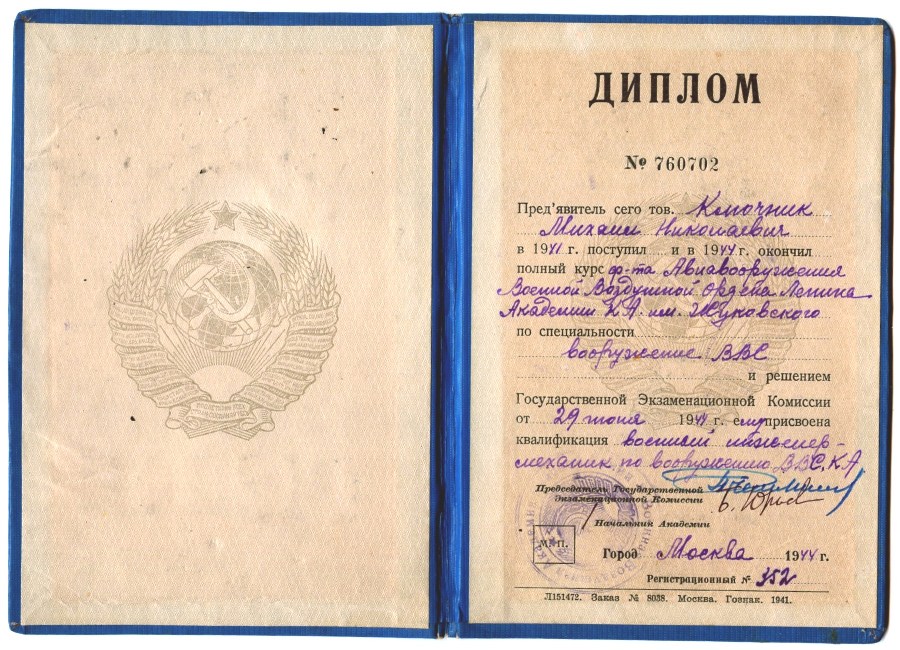 ДИПЛОМ
№ 760702
Пред'явитель сего тов. Ключник
Михаил Николаевич
в 1941 г. поступил и в 1944 г. окончил
полный курс ф-та Авиавооружения
Военной Воздушной Ордена Ленина
Академии К.А. им. Жуковского
по специальности
вооружение ВВС
и решением
Государственной Экзаменационной Комиссии
от 29 июня 1944 г. ему присвоена
квалификация военный инженер-
механик по вооружению ВВС, К.А
Председатель Государственной
Экзаменационной Комиссии
Начальник Академии
М.П.
Город Москва 1944 г.
Регистрационный № 352
Л151472. Заказ № 8038. Москва. Гознак. 1941.